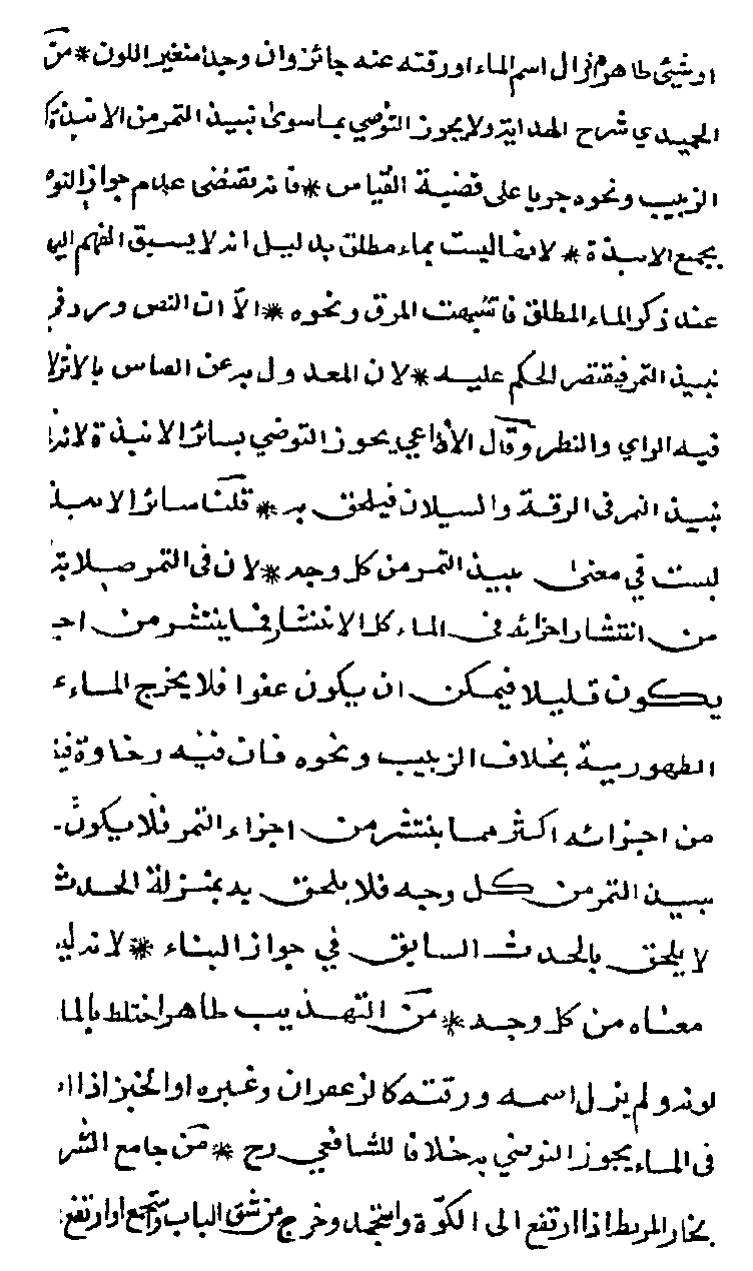 او شيئ طاهر فزال اسم الماء او رقته عنه جائز وان وجد متغير اللون * من
الحميدي شرح الهداية ولا يجوز التوضي بما سوى نبيذ التمر من الانبذة
الزبيب ونحوه جريا على قضية القياس * فانه يقتضى عدم جواز التو
بجميع الانبذة * لانها ليست بماء مطلق بدليل انه لا يسبق الفهم الي
عند ذكر الماء المطلق فاشبهت المرق ونحوه * الا ان النص ورد في
نبيذ التمر فيقتصر الحكم عليه * لان المعدول به عن القياس بالاثر لا
فيه الراي والنظر وقال الأوزاعي يجوز التوضي بسائر الانبذة لانه
نبيذ التمر في الرقة والسيلان فيلحق به * قلنا سائر الانبذ
ليست في معنى نبيذ التمر من كل وجه * لان في التمر صلابة
من انتشار اجزائه في الماء كل الانتشار فما ينتشر من اجـ
يكون قليلا فيمكن ان يكون عفوا فلا يخرج الماء ع
الطهورية بخلاف الزبيب ونحوه فان فيه رخاوة فين
من اجزائه اكثر مما ينتشر من اجزاء التمر فلا يكون
نبيذ التمر من كل وجه فلا يلحق به بمنزلة الحدث
لا يلحق بالحدث السابق في جواز البناء * لانه لي
معناه من كل وجه * من التهذيب طاهر اختلط بالما
لونه ولم يزل اسمه ورقته كالزعفران وغيره او الخبز اذا ا
في الماء يجوز التوضي به خلافا للشافعي رح * من جامع الشر
بخار المربط اذا ارتفع الى الكوّة واستجمد وخرج من شق الباب واستجمع او ارتفع